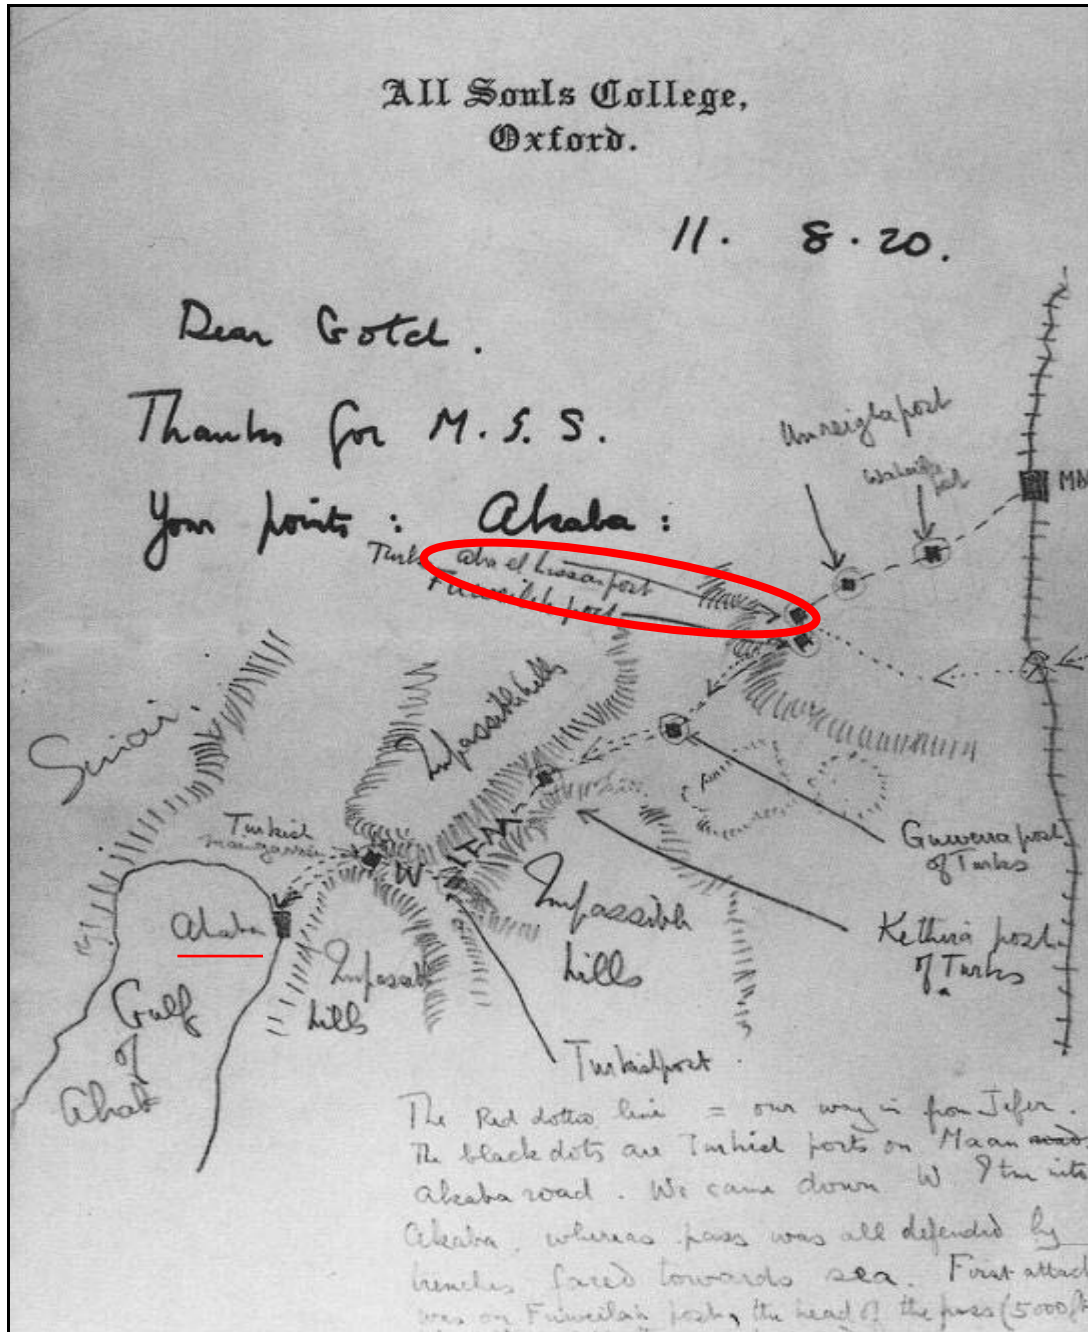 All Souls College,
Oxford.
11. 8.20.
Dear Gotch.
Thanks for M.S.S.
Your points: Akaba:
Unreigha post
post
MAA
Turks Aba el Lissan post
Fuweilah post
Sinai.
Impassible hills
Guweira post
of Turks
Turkish
Kethira post
of Turks
W ITM
Impassible
hills
Akaba
Impassable
hills
Gulf
of
Akab
Turkish post
The Red dotted line = our way in from Jefer.
The black dots are Turkish posts on Maan road
Akaba road. We came down W. Itm into
Akaba, whereas pass was all defended by
trenches faced towards sea. First attack
was on Fuweilah post, the head of the pass (5000